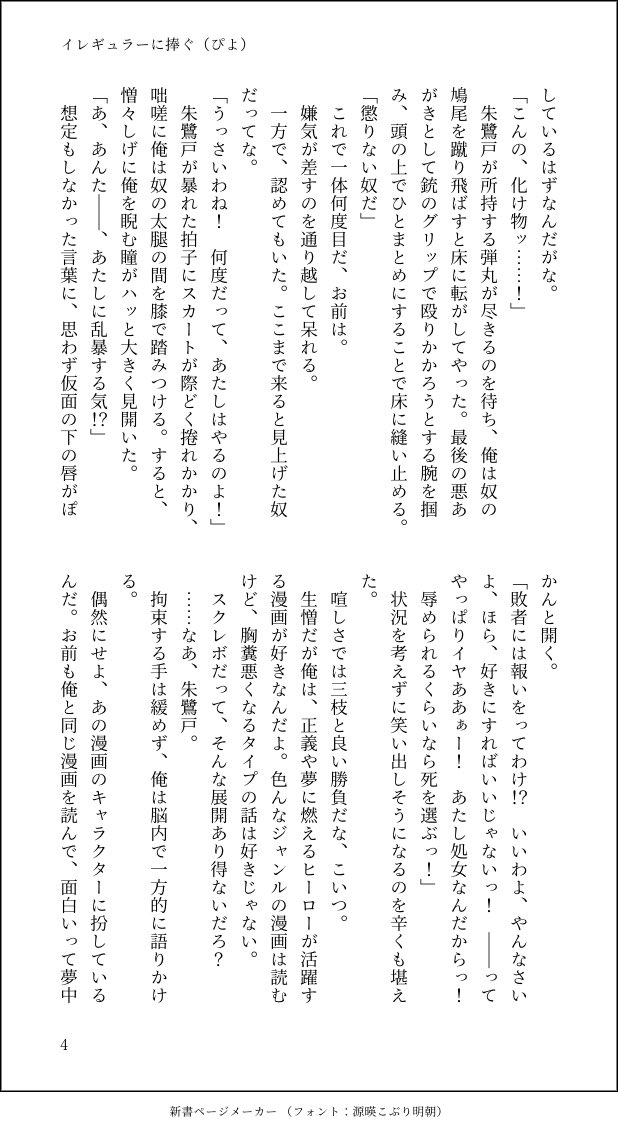 イレギュラーに捧ぐ（ぴよ）
しているはずなんだがな。
「こんの、化け物ッ……！」
　朱鷺戸が所持する弾丸が尽きるのを待ち、俺は奴の
鳩尾を蹴り飛ばすと床に転がしてやった。最後の悪あ
がきとして銃のグリップで殴りかかろうとする腕を掴
み、頭の上でひとまとめにすることで床に縫い止める。
「懲りない奴だ」
　これで一体何度目だ、お前は。
　嫌気が差すのを通り越して呆れる。
　一方で、認めてもいた。ここまで来ると見上げた奴
だってな。
「うっさいわね！　何度だって、あたしはやるのよ！」
　朱鷺戸が暴れた拍子にスカートが際どく捲れかかり、
咄嗟に俺は奴の太腿の間を膝で踏みつける。すると、
憎々しげに俺を睨む瞳がハッと大きく見開いた。
「あ、あんた――、あたしに乱暴する気!?」
　想定もしなかった言葉に、思わず仮面の下の唇がぽ
かんと開く。
「敗者には報いをってわけ!?　いいわよ、やんなさい
よ、ほら、好きにすればいいじゃないっ！　――って
やっぱりイヤああぁー！　あたし処女なんだからっ！
　辱められるくらいなら死を選ぶっ！」
　状況を考えずに笑い出しそうになるのを辛くも堪え
た。
　喧しさでは三枝と良い勝負だな、こいつ。
　生憎だが俺は、正義や夢に燃えるヒーローが活躍す
る漫画が好きなんだよ。色んなジャンルの漫画は読む
けど、胸糞悪くなるタイプの話は好きじゃない。
　スクレボだって、そんな展開あり得ないだろ？
　……なあ、朱鷺戸。
　拘束する手は緩めず、俺は脳内で一方的に語りかけ
る。
　偶然にせよ、あの漫画のキャラクターに扮している
んだ。お前も俺と同じ漫画を読んで、面白いって夢中
4
新書ページメーカー（フォント：源暎こぶり明朝）